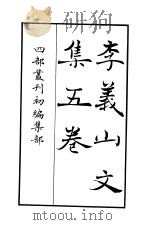 李義山文
集五卷
四部叢刊初編集部
mtoou.info